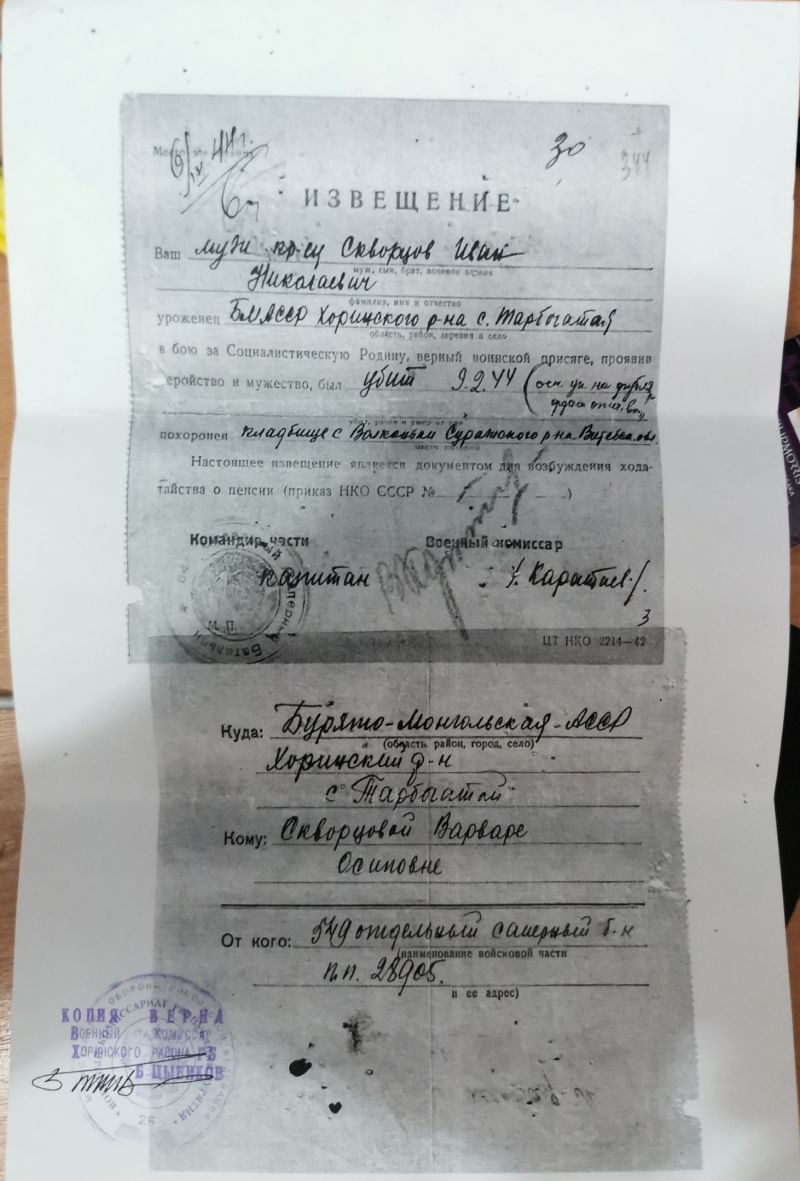 44 г.
30
ИЗВЕЩЕНИЕ
Ваш муж кр-ец Скворцов Иван
муж, сын, брат, военное звание
Николаевич
фамилия, имя и отчество
уроженец БМАССР Хоринского р-на с. Тарбогатая
область, район, деревня и село
в бою за Социалистическую Родину, верный воинской присяге, проявив
геройство и мужество, был убит 9.2.44
похоронен кладбище с Волконьки Суражского р-на Витебск. обл.
Настоящее извещение является документом для возбуждения хода-
тайства о пенсии (приказ НКО СССР №
Командир части Военный комиссар
капитан
М. П.
3
ЦТ НКО 2214—42
Куда: Бурято-Монгольская АССР
(область, район, город, село)
Хоринский р-н
с Тарбогатой
Кому: Скворцовой Варваре
Осиповне
От кого: 549 отдельный саперный б-н
(наименование войсковой части
п.п. 28905.
и ее адрес)
КОПИЯ ВЕРНА
ВОЕННЫЙ КОМИССАР
ХОРИНСКОГО РАЙОНА РБ
Б. ЦЫБИКОВ